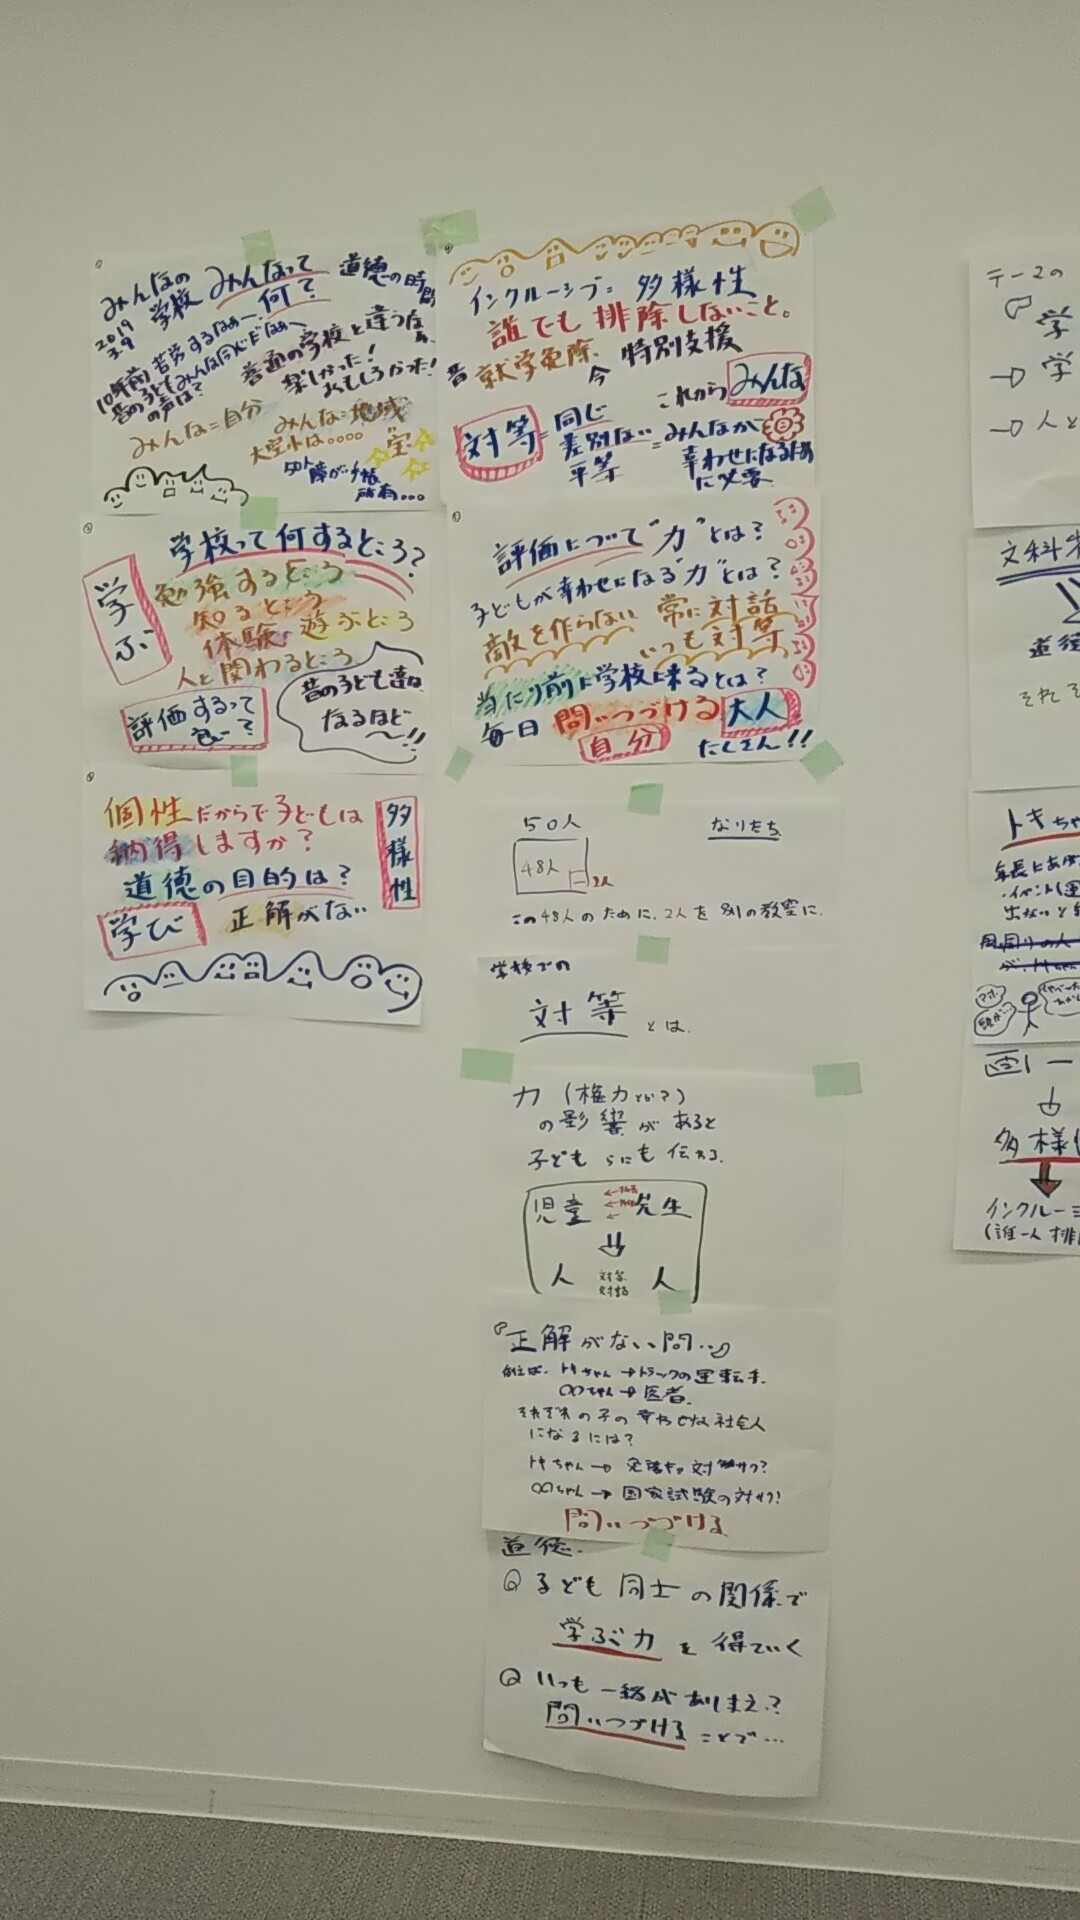 みんなの学校
みんなって何?
道徳の時間
2019
3.9
10年前 苦労するなぁー
昔の子どもみんな今どこだなぁ〜
の声は?
普通の学校と違うなぁ
楽しかった!
おもしろかった!
みんな=自分
みんな=地域
大空小は....
"宝"
障がい手帳
所有...
インクルーシブ= 多様性
誰でも 排除しないこと。
昔 就学免除
今 特別支援
これから みんな
対等=同じ
差別ない
平等
=みんなが
幸わせになるため
に必要
学校って何するところ?
学ぶ
勉強するところ
知るところ
体験 遊ぶところ
人と関わるところ
評価するって
良い?
昔の子ども達は
なるほど
〜!!
評価について "力"とは?
子どもが幸わせになる"力"とは?
敵を作らない 常に対話
いつも対等
当たり前に学校に来るとは?
毎日 問いつづける 大人
自分 たくさん!!
個性だからで子どもは
納得しますか?
道徳の目的は?
学び 正解がない
多様性
50人
なりたち
48人
2人
この48人のために、2人を別の教室に.
学校での
対等 とは.
力(権力とか?)
の影響があると
子どもらにも伝わる.
児童 ← 先生
⇓
人 対等 人
対話
『正解がない問い』
例えば、トキちゃん→トラックの運転手.
〇〇ちゃん→医者.
それぞれの子の幸わせな社会人
になるには?
トキちゃん→
〇〇ちゃん→ 国家試験の対サク!
問いつづける
道徳.
Q 子ども同士の関係で
学ぶ力を得ていく
Q いつも一緒があたりまえ?
問いつづけることで…
テーマの
『学
学
→
→人と
文科
道徳
それぞ
トキちゃ
年長に
イベント(運
出ないと
周りの人
が、トキちゃん
画一
↓
多様性
↓
インクルー
(誰一人 排